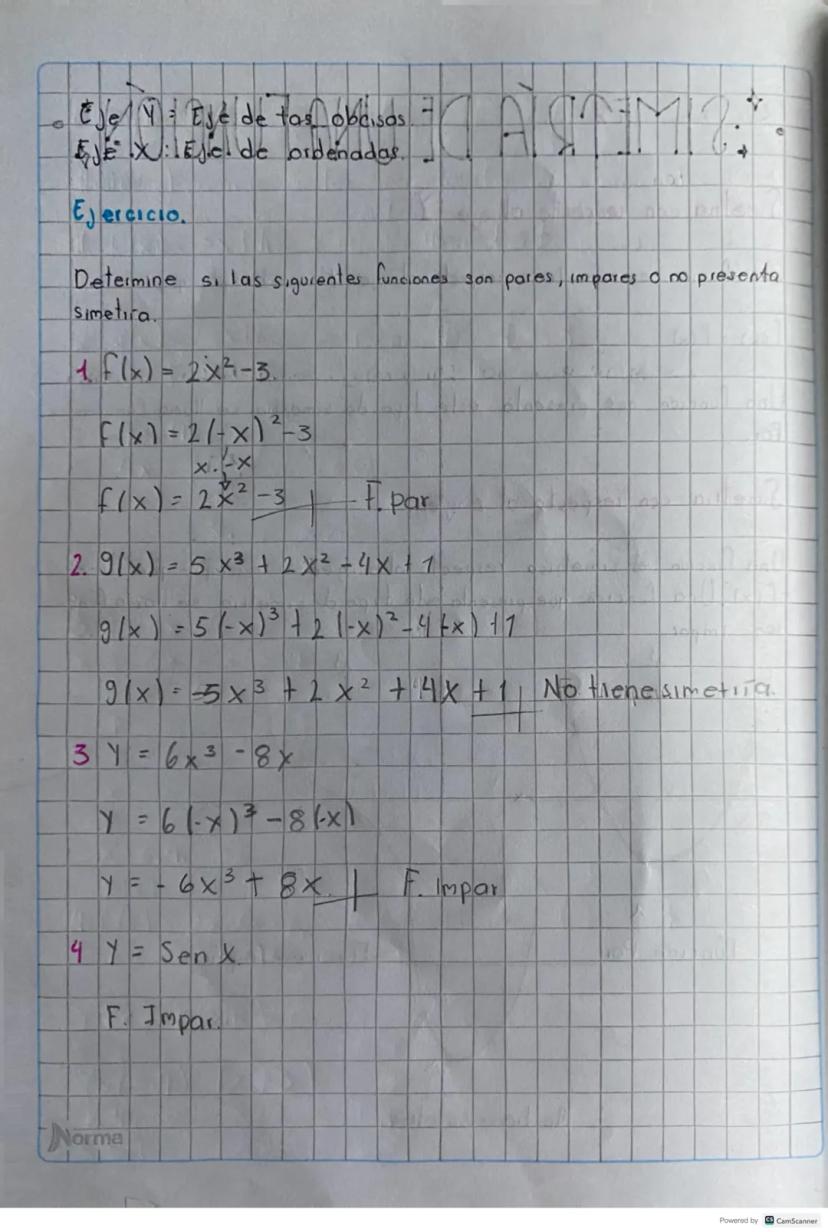 Eje Y: Eje de las abcisas.
Eje X: Eje de ordenadas.
Ejercicio.
Determine si las siguientes funciones son pares, impares o no presenta
simetira.
1. f(x) = 2x² - 3.
f(x) = 2(-x)² - 3
x · -x
f(x) = 2x² - 3 F. par
2. g(x) = 5x³ + 2x² - 4x + 1
g(x) = 5(-x)³ + 2(-x)² - 4(-x) + 1
g(x) = -5x³ + 2x² + 4x + 1 No tiene simetria.
3 Y = 6x³ - 8x
Y = 6(-x)³ - 8(-x)
Y = -6x³ + 8x F. Impar
4 Y = Sen X
F. Impar.
Norma
Powered by CS CamScanner